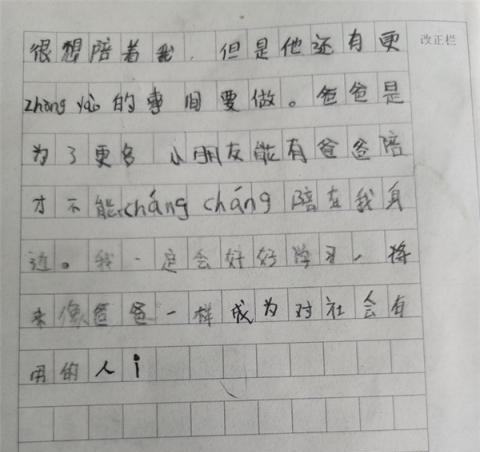 很想陪着我，但是他还有更
改正栏
zhòng yào的事间要做。爸爸是
为了更多 小朋友能有爸爸陪
才不能cháng cháng陪在我身
边。我一定会好好学习，将
来像爸爸一样成为对社会有
用的人！